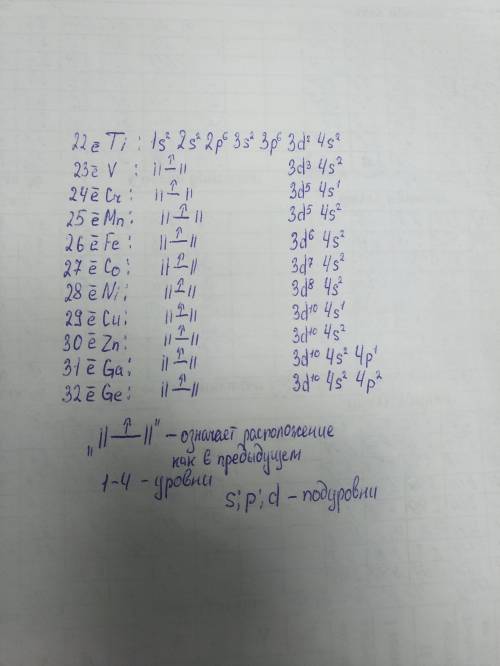 22ē Ti : 1s² 2s² 2p⁶ 3s² 3p⁶ 3d² 4s²
23ē V : ıı—↑—ıı 3d³ 4s²
24ē Cr : ıı—↑—ıı 3d⁵ 4s¹
25ē Mn : ıı—↑—ıı 3d⁵ 4s²
26ē Fe : ıı—↑—ıı 3d⁶ 4s²
27ē Co : ıı—↑—ıı 3d⁷ 4s²
28ē Ni : ıı—↑—ıı 3d⁸ 4s²
29ē Cu : ıı—↑—ıı 3d¹⁰ 4s¹
30ē Zn : ıı—↑—ıı 3d¹⁰ 4s²
31ē Ga : ıı—↑—ıı 3d¹⁰ 4s² 4p¹
32ē Ge : ıı—↑—ıı 3d¹⁰ 4s² 4p²
„ıı—↑—ıı" – означает расположение
как в предыдущем
1-4 - уровни
s; p; d – подуровни